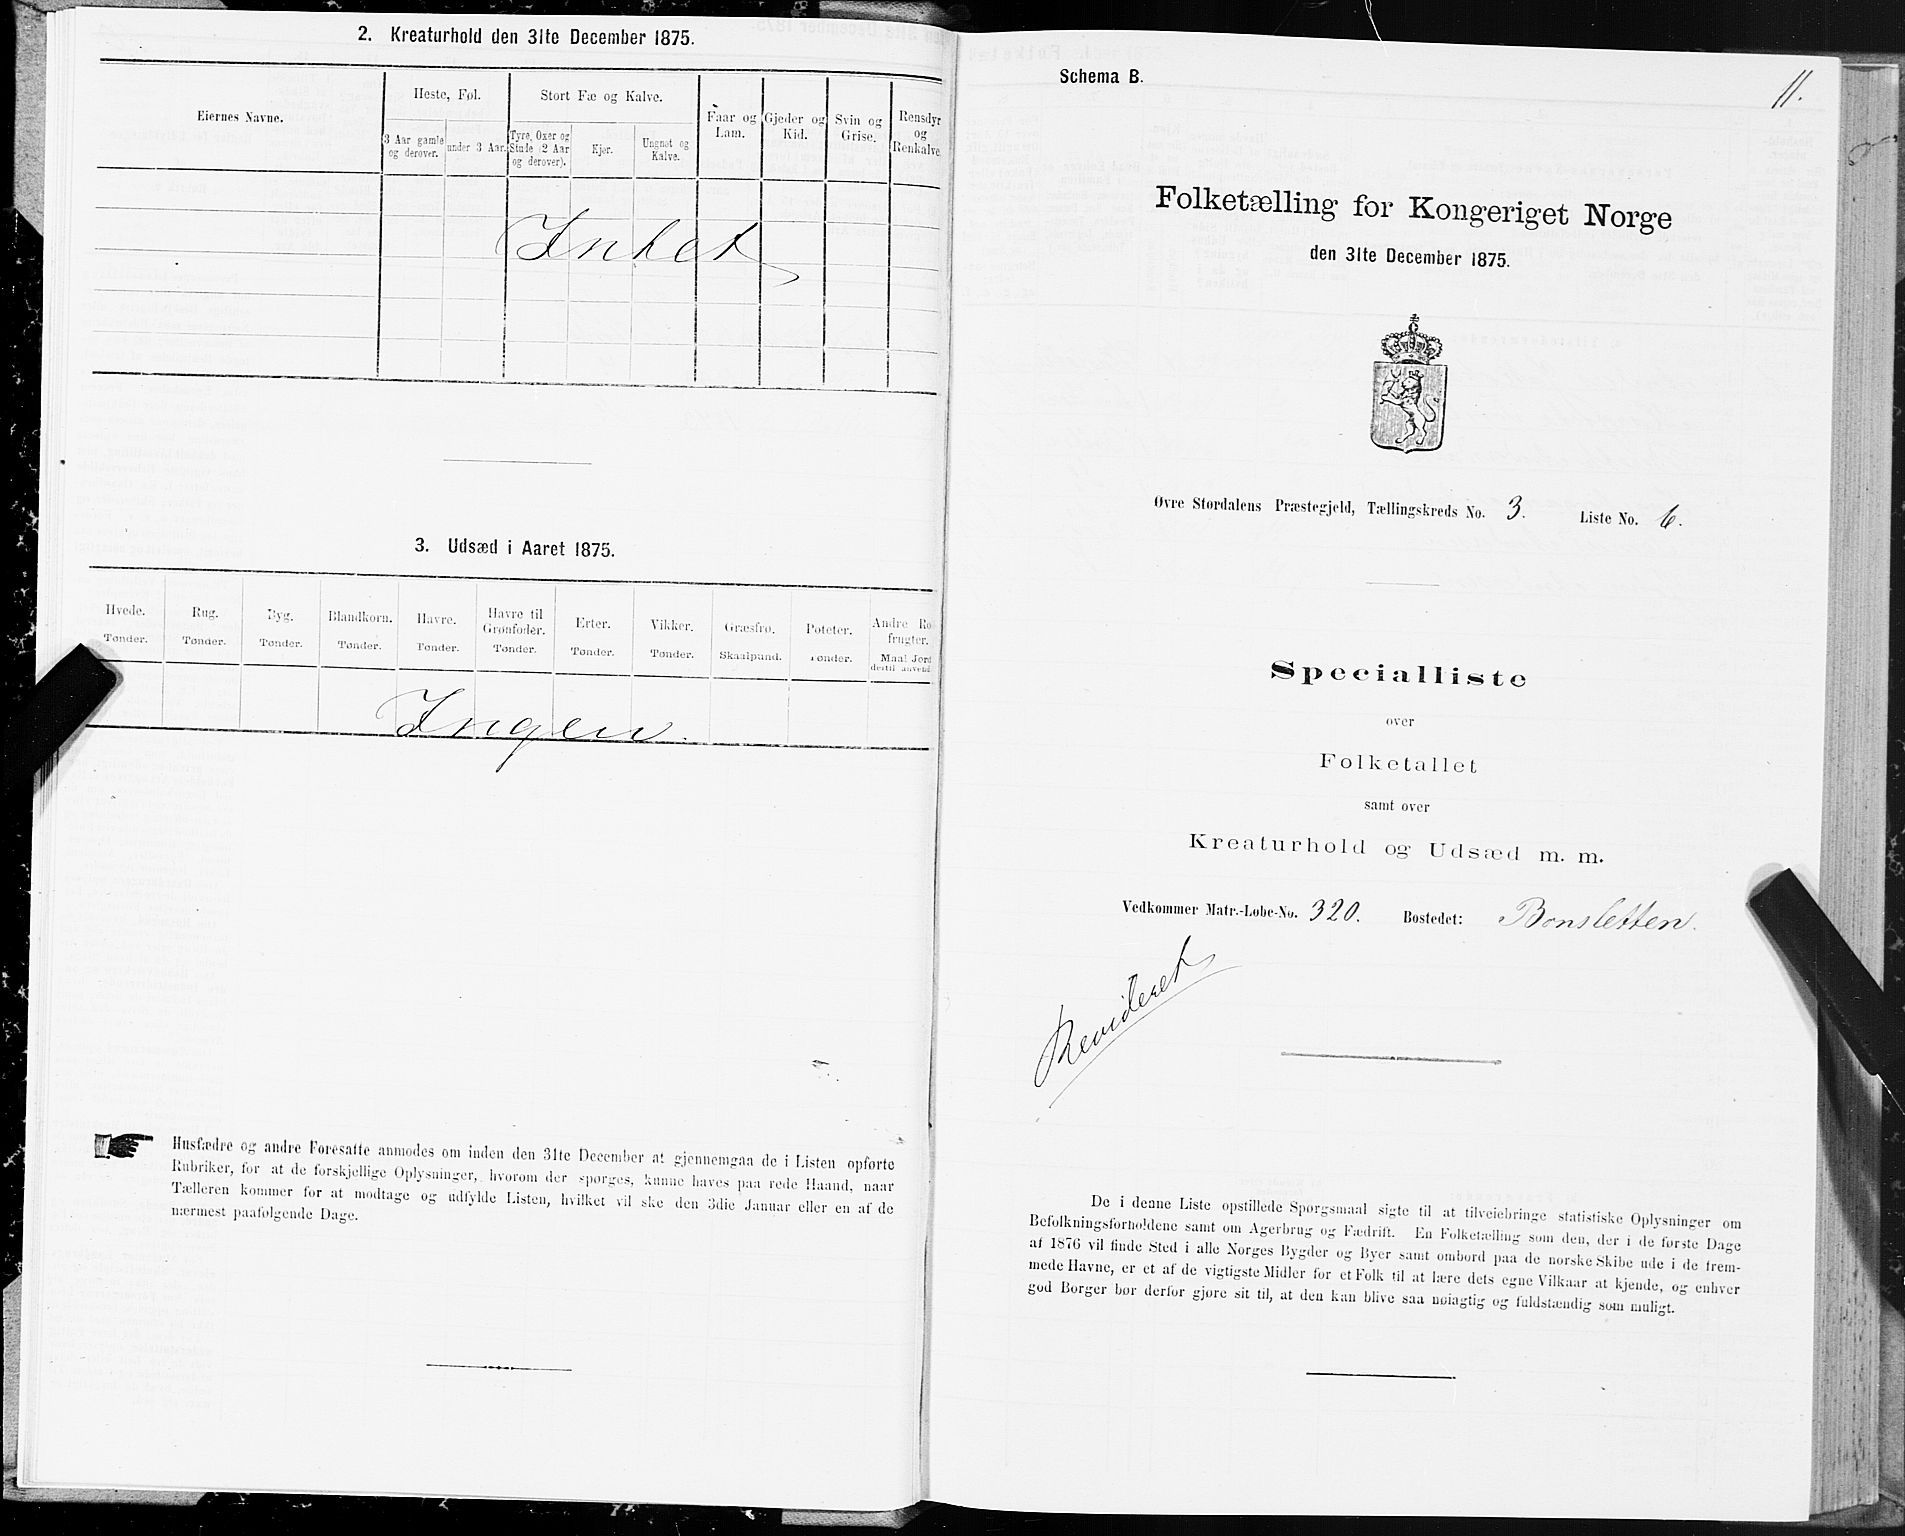 2. Kreaturhold den 31te December 1875.
Eiernes Navne.
Heste, Føl.
Stort Fæ og Kalve.
Faar og
Lam.
Gjeder og
Kid.
Svin og
Grise.
Rensdyr
og
Renkalve.
3 Aar gamle
og derover.
under 3 Aar.
Tyre, Oxer og
Stude (2 Aar
og derover).
Kjør.
Ungnøt og
Kalve.
Intet
3. Udsæd i Aaret 1875.
Hvede.
Tønder.
Rug.
Tønder.
Byg.
Tønder.
Blandkorn.
Tønder.
Havre.
Tønder.
Havre til
Grønfoder.
Tønder.
Erter.
Tønder.
Vikker.
Tønder.
Græsfrø.
Skaalpund.
Poteter.
Tønder.
Andre Ro
frugter.
Maal Jord
dertil anvend
Ingen.
Husfædre og andre Foresatte anmodes om inden den 31te December at gjennemgaa de i Listen opførte
Rubriker, for at de forskjellige Oplysninger, hvorom der spørges, kunne haves paa rede Haand, naar
Tælleren kommer for at modtage og udfylde Listen, hvilket vil ske den 3die Januar eller en af de
nærmest paafølgende Dage.
Schema B.
11.
Folketælling for Kongeriget Norge
den 31te December 1875.
Øvre Stordalens Præstegjeld, Tællingskreds No. 3. Liste No. 6.
Specialliste
over
Folketallet
samt over
Kreaturhold og Udsæd m. m.
Vedkommer Matr.-Løbe-No. 320. Bostedet: Bonsletten.
Revideret
De i denne Liste opstillede Spørgsmaal sigte til at tilveiebringe statistiske Oplysninger om
Befolkningsforholdene samt om Agerbrug og Fædrift. En Folketælling som den, der i de første Dage
af 1876 vil finde Sted i alle Norges Bygder og Byer samt ombord paa de norske Skibe ude i de frem-
mede Havne, er et af de vigtigste Midler for et Folk til at lære dets egne Vilkaar at kjende, og enhver
god Borger bør derfor gjøre sit til, at den kan blive saa nøiagtig og fuldstændig som muligt.